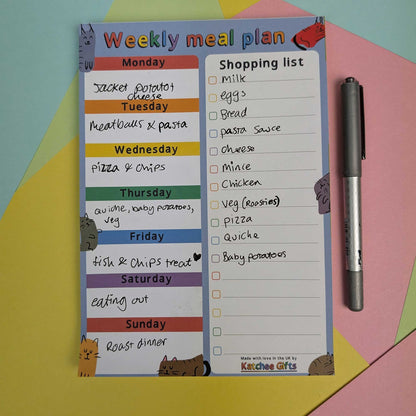 Weekly meal plan
Monday
Jacket potato +
cheese
Tuesday
Meatballs & pasta
Wednesday
pizza & chips
Thursday
Quiche, baby potatoes,
veg
Friday
fish & chips treat ♥
Saturday
eating out
Sunday
Roast dinner
Shopping list
Milk
eggs
Bread
pasta sauce
cheese
Mince
Chicken
veg (roasties)
pizza
Quiche
Baby potatoes
Made with love in the UK by
Katchee Gifts